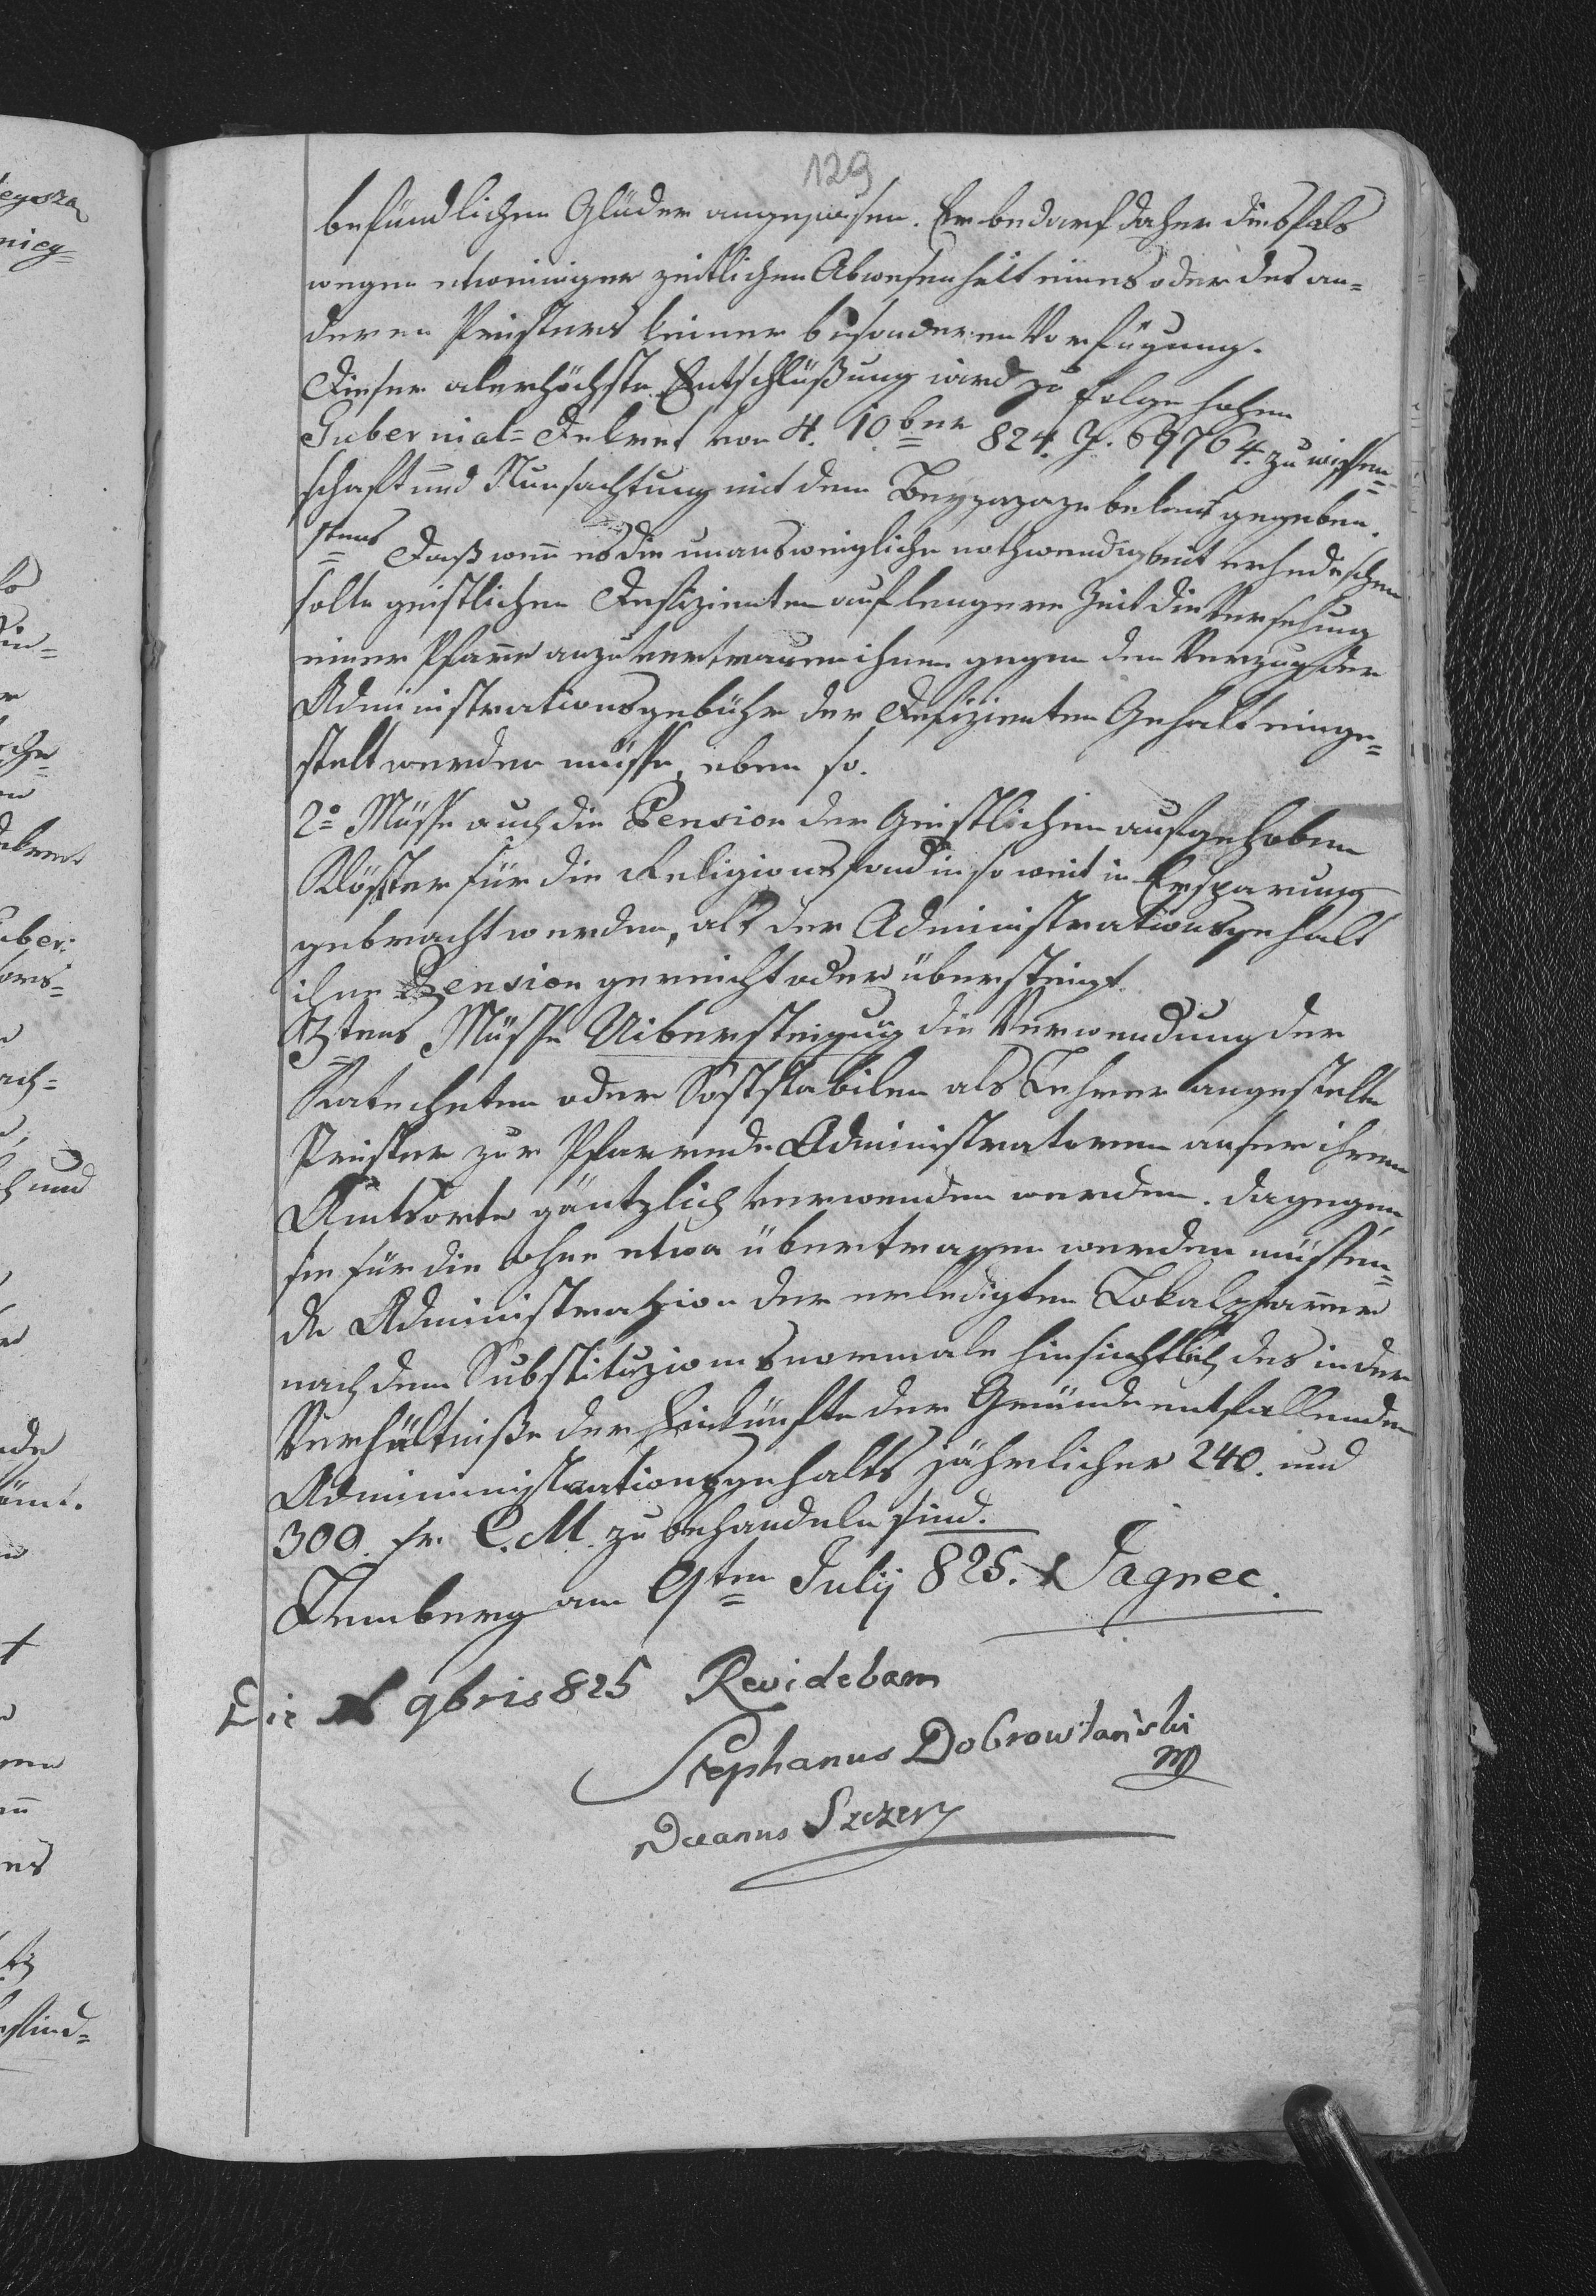 129
befündlichen Glüder angewisen. Er bedarf daher diesfals
wegen etweiniger zeitlichen Abwesenheit eines oder des an=
deren Priesters keiner besonderen Verfügung.
Dieser alerhöchste Entschlüßung wird zu folge hohen
Gubernial= Dekret von 4. 10ber 824. Z. 69764. zu wissen=
schaft und Nachachtung mit dem bekant gegeben.
1tens Daß wenn es die unausweigliche nothwendigkeit erheischen
solte geistlichen Defizienten auf lengere Zeit die Versehung
einer Pfarre anzuvertrauen ihnen gegen den Verzug der
Administrationsgebühr der Defizienten Gehalt einge=
stelt werden müsse, eben so.
2o Müsse auch die Pension der Geistlichen aufgehoben
Klöster für die Religionsfond in so weit in Ersparung
gebracht werden, als der Administrationsgehalt
ihre Pension gereicht oder übersteigt.
3tens Müsse Uibersteigung die Verwendung der
Katecheten oder sostabilen als Lehrer angestelte
Priester zur Pfarrende Administratoren auser ihrem
Amtsorte gäntzlich verwenden werden. dagegen
sie für die ohne etwa übertragen werden müssen=
de Administrazion der erledigten Lokalpfarrer
nach dem Substituzionsnormale hinsichtlich des in der
Verhältniße der Einkünfte der Gründe entfallenden
Admininistrationsgehalts jährlicher 240. und
300. fr. C. M. zu behandeln sind.
Lemberg am 9ten Julij 825. Jagnec.
Die 9bris 825 Revidebam
Stephanus Dobrowlański
mp
Decanus Szczerz